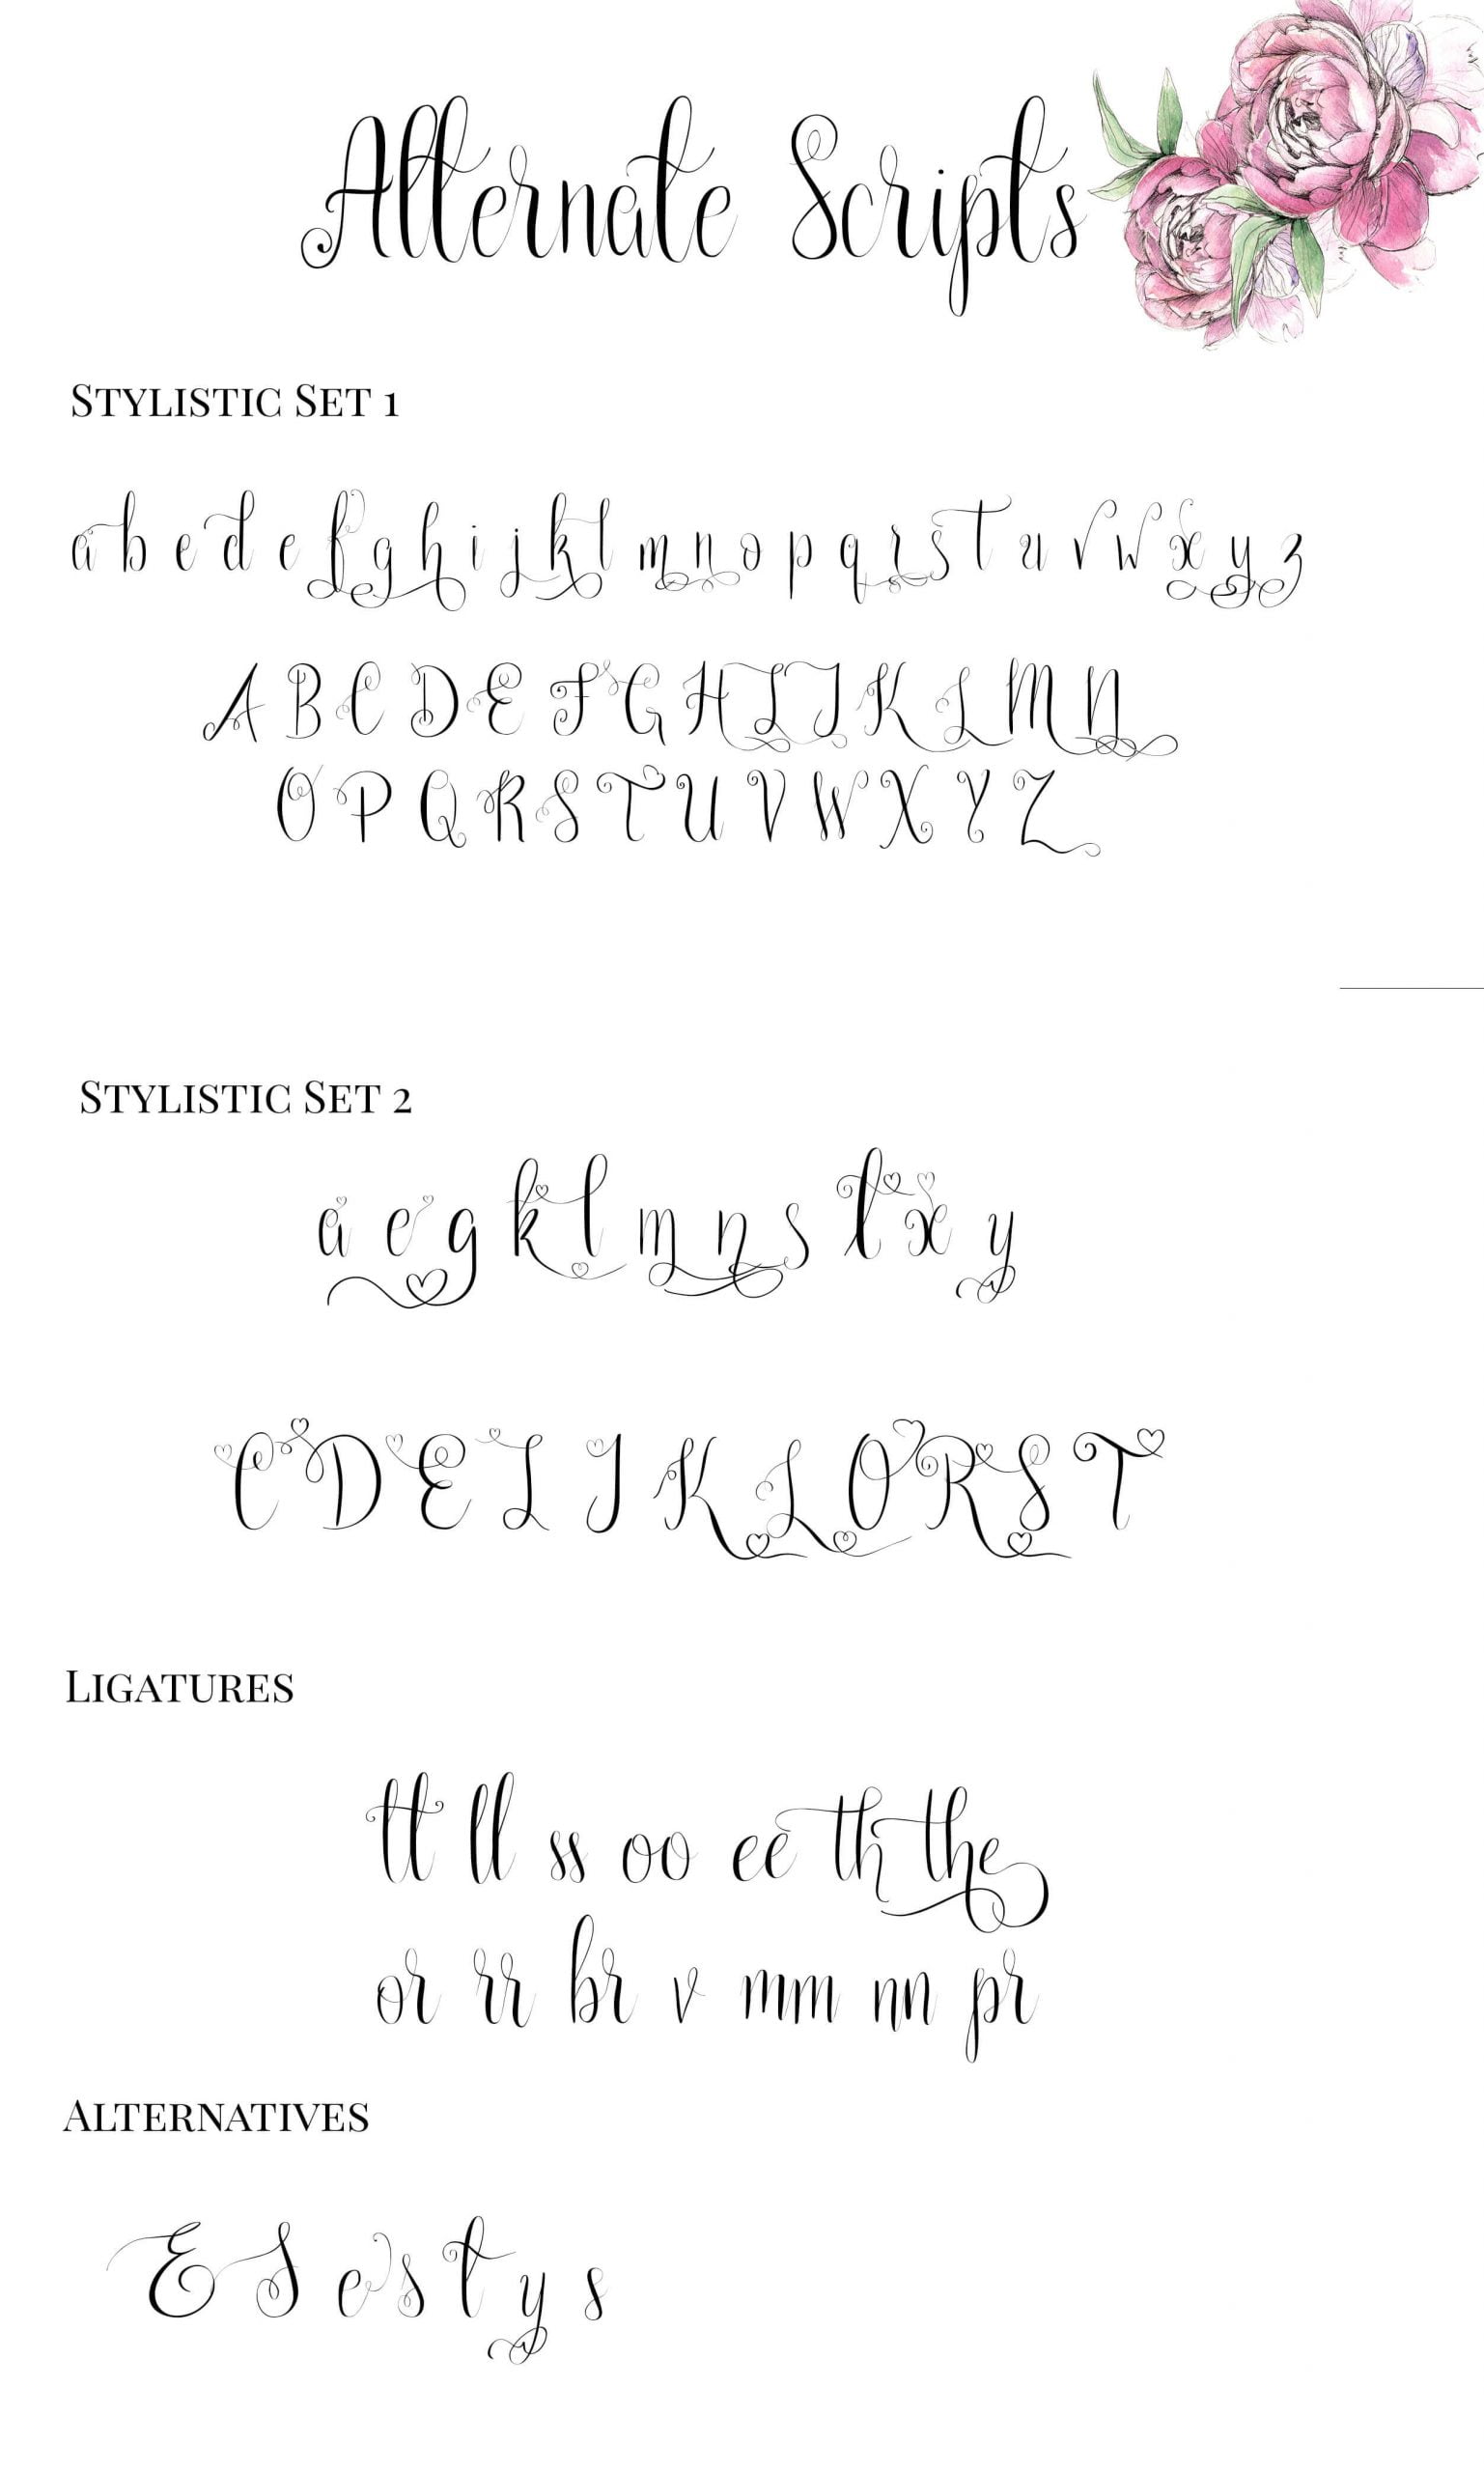 Alternate Scripts
STYLISTIC SET 1
a b c d e f g h i j k l m n o p q r s t u v w x y z
A B C D E F G H I J K L M N
O P Q R S T U V W X Y Z
STYLISTIC SET 2
a e g k l m n s t x y
C D E I J K L O R S T
LIGATURES
tt ll ss oo ee th the
or rr br v mm nn pr
ALTERNATIVES
E S e s t y s